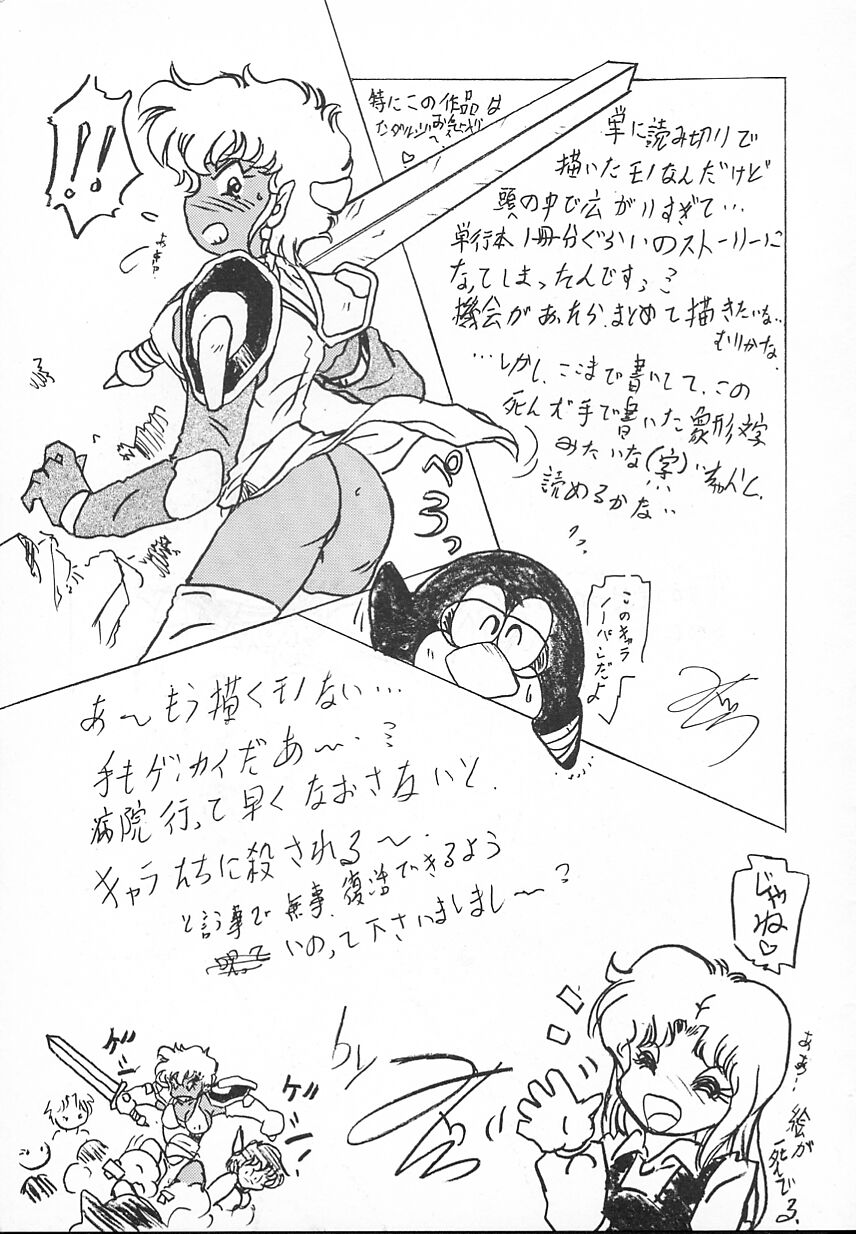 !!
特にこの作品は
単に読み切りで
描いたモノなんだけど
頭の中で広がりすぎて…
単行本1冊分ぐらいのストーリーに
なってしまったんです
機会があったらまとめて描きたいな…
むりかな
…しかし、ここまで書いてて、この
死んだ手で書いた象形文字
みたいな(字)…ちゃんと
読めるかな…
ペろっ
このキャラ
ノーパンだよ
あ〜もう描くモノない…
手もゲンカイだあ〜
病院行って早くなおさないと
キャラたちに殺される〜
と言う事で無事、復活できるよう
いのって下さいましまし〜
じゃね♡
ゲシ
ゲシ
by
ああ!絵が
死んでる